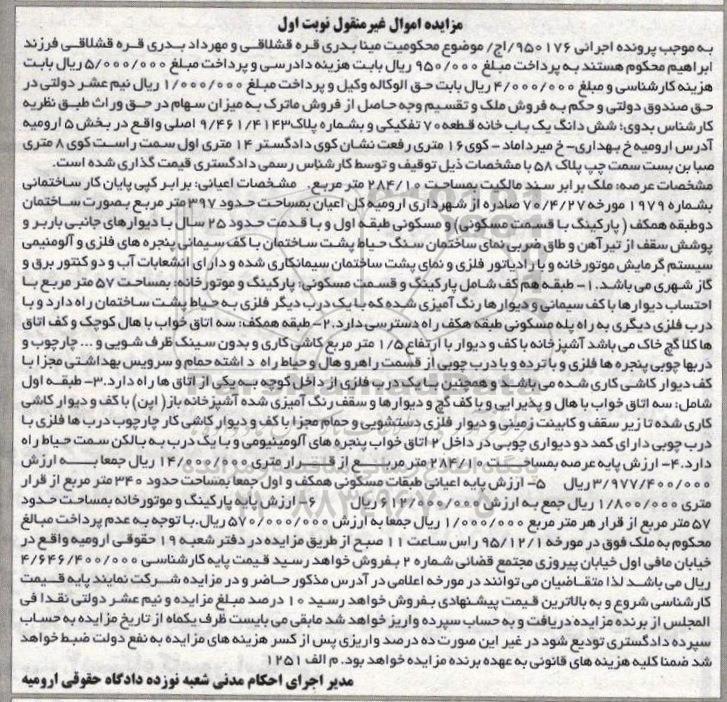 مزایده اموال غیرمنقول نوبت اول
به موجب پرونده اجرائی ۹۵۰۱۷۶/اج/ موضوع محکومیت مینا بدری قره قشلاقی و مهرداد بدری قره قشلاقی فرزند
ابراهیم محکوم هستند به پرداخت مبلغ ۹۵۰/۰۰۰ ریال بابت هزینه دادرسی و پرداخت مبلغ ۵/۰۰۰/۰۰۰ ریال بابت
هزینه کارشناسی و مبلغ ۴/۰۰۰/۰۰۰ ریال بابت حق الوکاله وکیل و پرداخت مبلغ ۱/۰۰۰/۰۰۰ ریال نیم عشر دولتی در
حق صندوق دولتی و حکم به فروش ملک و تقسیم وجه حاصل از فروش ماترک به میزان سهام در حق وراث طبق نظریه
کارشناس بدوی؛ شش دانگ یک باب خانه قطعه ۷۰ تفکیکی و بشماره پلاک ۹/۴۶۱/۴۱۴۳ اصلی واقع در بخش ۵ ارومیه
آدرس ارومیه خ بهداری- خ میرداماد - کوی ۱۶ متری رفعت نشان کوی دادگستر ۱۴ متری اول سمت راست کوی ۸ متری
صبا بن بست سمت چپ پلاک ۵۸ با مشخصات ذیل توقیف و توسط کارشناس رسمی دادگستری قیمت گذاری شده است.
مشخصات عرصه: ملک برابر سند مالکیت بمساحت ۲۸۴/۱۰ متر مربع. مشخصات اعیانی: برابر کپی پایان کار ساختمانی
بشماره ۱۹۷۹ مورخه ۷۰/۴/۲۷ صادره از شهرداری ارومیه کل اعیان بمساحت حدود ۳۹۷ متر مربع بصورت ساختمان
دوطبقه همکف ( پارکینگ با قسمت مسکونی) و مسکونی طبقه اول و با قدمت حدود ۲۵ سال با دیوارهای جانبی باربر و
پوشش سقف از تیرآهن و طاق ضربی نمای ساختمان سنگ حیاط پشت ساختمان با کف سیمانی پنجره های فلزی و آلومنیمی
سیستم گرمایش موتورخانه و با رادیاتور فلزی و نمای پشت ساختمان سیمانکاری شده و دارای انشعابات آب و دو کنتور برق و
گاز شهری می باشد. ۱- طبقه هم کف شامل پارکینگ و قسمت مسکونی: پارکینگ و موتورخانه: بمساحت ۵۷ متر مربع با
احتساب دیوارها با کف سیمانی و دیوارها رنگ آمیزی شده که با یک درب دیگر فلزی به حیاط پشت ساختمان راه دارد و با
درب فلزی دیگری به راه پله مسکونی طبقه هکف راه دسترسی دارد. ۲- طبقه همکف: سه اتاق خواب با هال کوچک و کف اتاق
ها کلا گچ خاک می باشد آشپزخانه با کف و دیوار با ارتفاع ۱/۵ متر مربع کاشی کاری و بدون سینک ظرف شویی و ... چارچوب و
دربها چوبی پنجره ها فلزی و با نرده و با درب چوبی از قسمت راهرو هال و حیاط راه داشته حمام و سرویس بهداشتی مجزا با
کف دیوار کاشی کاری شده می باشد و همچنین با یک درب فلزی از داخل کوچه به یکی از اتاق ها راه دارد. ۳- طبقه اول
شامل: سه اتاق خواب با هال و پذیرایی و با کف گچ و دیوارها و سقف رنگ آمیزی شده آشپزخانه باز( اپن) با کف و دیوار کاشی
کاری شده تا زیر سقف و کابینت زمینی و دیوار فلزی دستشویی و حمام مجزا با کف و دیوار کاشی کار چارچوب درب ها فلزی با
درب چوبی دارای کمد دو دیواری چوبی در داخل ۲ اتاق خواب پنجره های آلومینیومی و با یک درب به بالکن سمت حیاط راه
دارد. ۴- ارزش پایه عرصه بمساحت ۲۸۴/۱۰ متر مربع از قرار متری ۱۴/۰۰۰/۰۰۰ ریال جمعا به ارزش
۳/۹۷۷/۴۰۰/۰۰۰ ریال ۵- ارزش پایه اعیانی طبقات مسکونی همکف و اول جمعا بمساحت حدود ۳۴۰ متر مربع از قرار
متری ۱/۸۰۰/۰۰۰ ریال جمع به ارزش ۶۱۲/۰۰۰/۰۰۰ ریال ۶- ارزش پایه پارکینگ و موتورخانه بمساحت حدود
۵۷ متر مربع از قرار هر متر مربع ۱/۰۰۰/۰۰۰ ریال جمعا به ارزش ۵۷۰/۰۰۰/۰۰۰ ریال.با توجه به عدم پرداخت مبالغ
محکوم به ملک فوق در مورخه ۹۵/۱۲/۱ راس ساعت ۱۱ صبح از طریق مزایده در دفتر شعبه ۱۹ حقوقی ارومیه واقع در
خیابان مافی اول خیابان پیروزی مجتمع قضائی شماره ۲ بفروش خواهد رسید قیمت پایه کارشناسی ۴/۶۴۶/۴۰۰/۰۰۰
ریال می باشد لذا متقاضیان می توانند در مورخه اعلامی در آدرس مذکور حاضر و در مزایده شرکت نمایند پایه قیمت
کارشناسی شروع و به بالاترین قیمت پیشنهادی بفروش خواهد رسید ۱۰ درصد مبلغ مزایده و نیم عشر دولتی نقدا فی
المجلس از برنده مزایده دریافت و به حساب سپرده واریز خواهد شد مابقی می بایست ظرف یکماه از تاریخ مزایده به حساب
سپرده دادگستری تودیع شود در غیر این صورت ده درصد واریزی پس از کسر هزینه های مزایده به نفع دولت ضبط خواهد
شد ضمنا کلیه هزینه های قانونی به عهده برنده مزایده خواهد بود. م الف ۱۲۵۱
مدیر اجرای احکام مدنی شعبه نوزده دادگاه حقوقی ارومیه